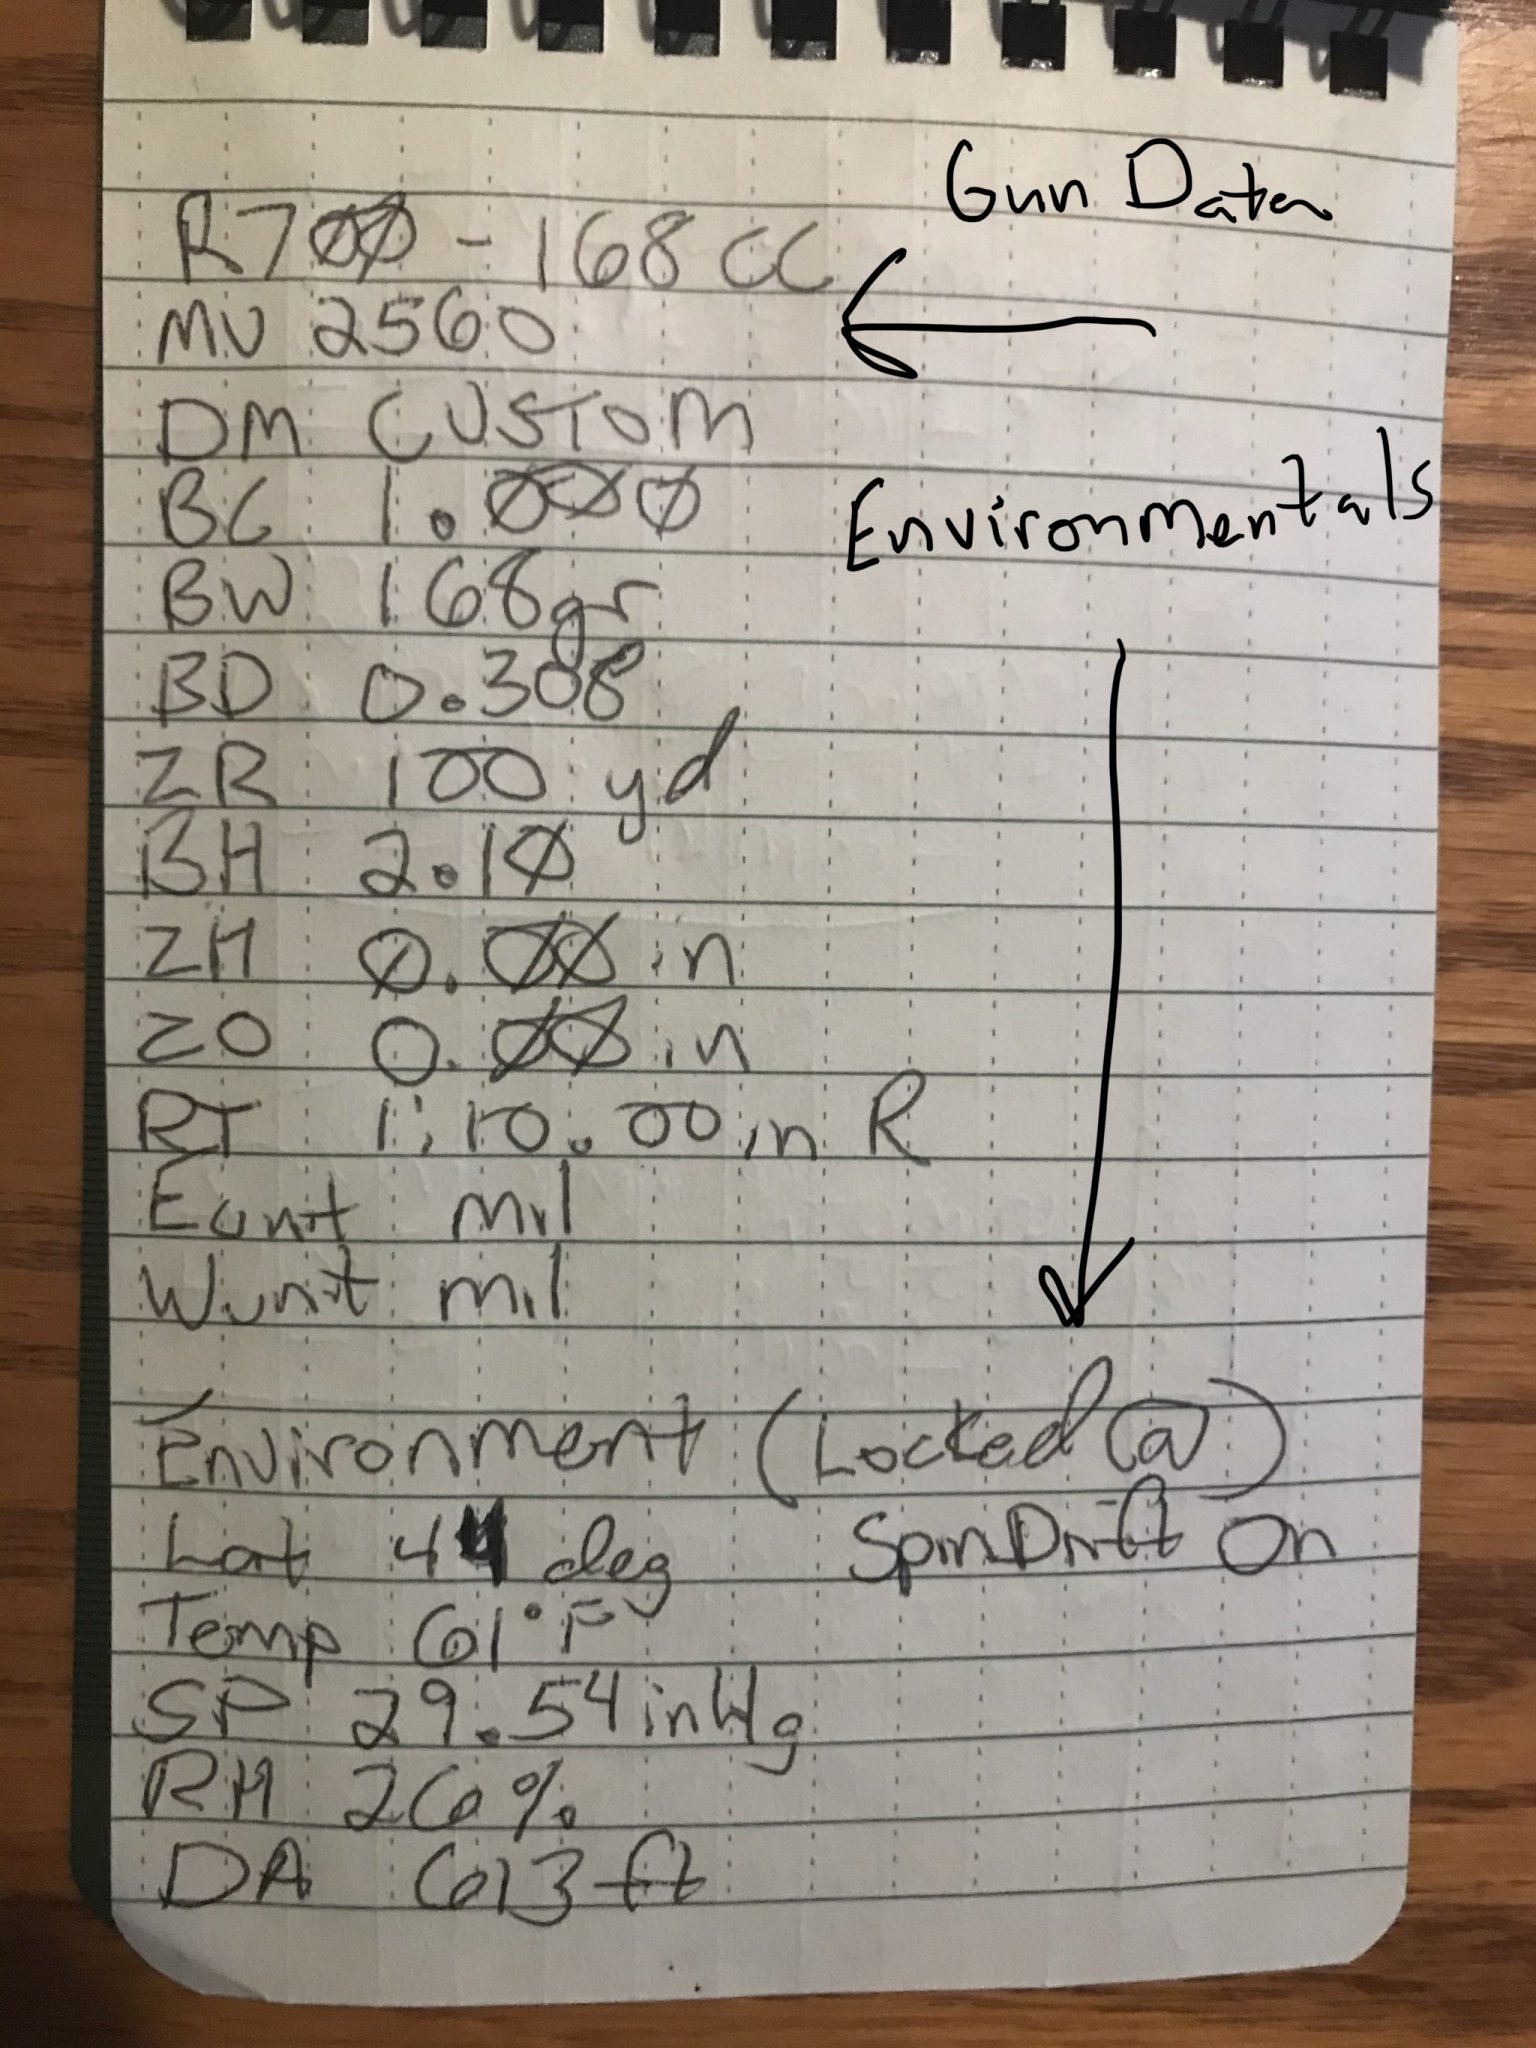 Gun Data
R700 - 168 CC
MV 2560
DM CUSTOM
BC 1.000
Environmentals
BW 168gr
BD 0.308
ZR 100 yd
BH 2.10
ZH 0.00 in
ZO 0.00 in
RT 1:10.00 in R
Eunit mil
Wunit mil
Environment (Locked @)
Lat 44 deg SpinDrift On
Temp 61°F
SP 29.54 inHg
RH 26%
DA 613 ft